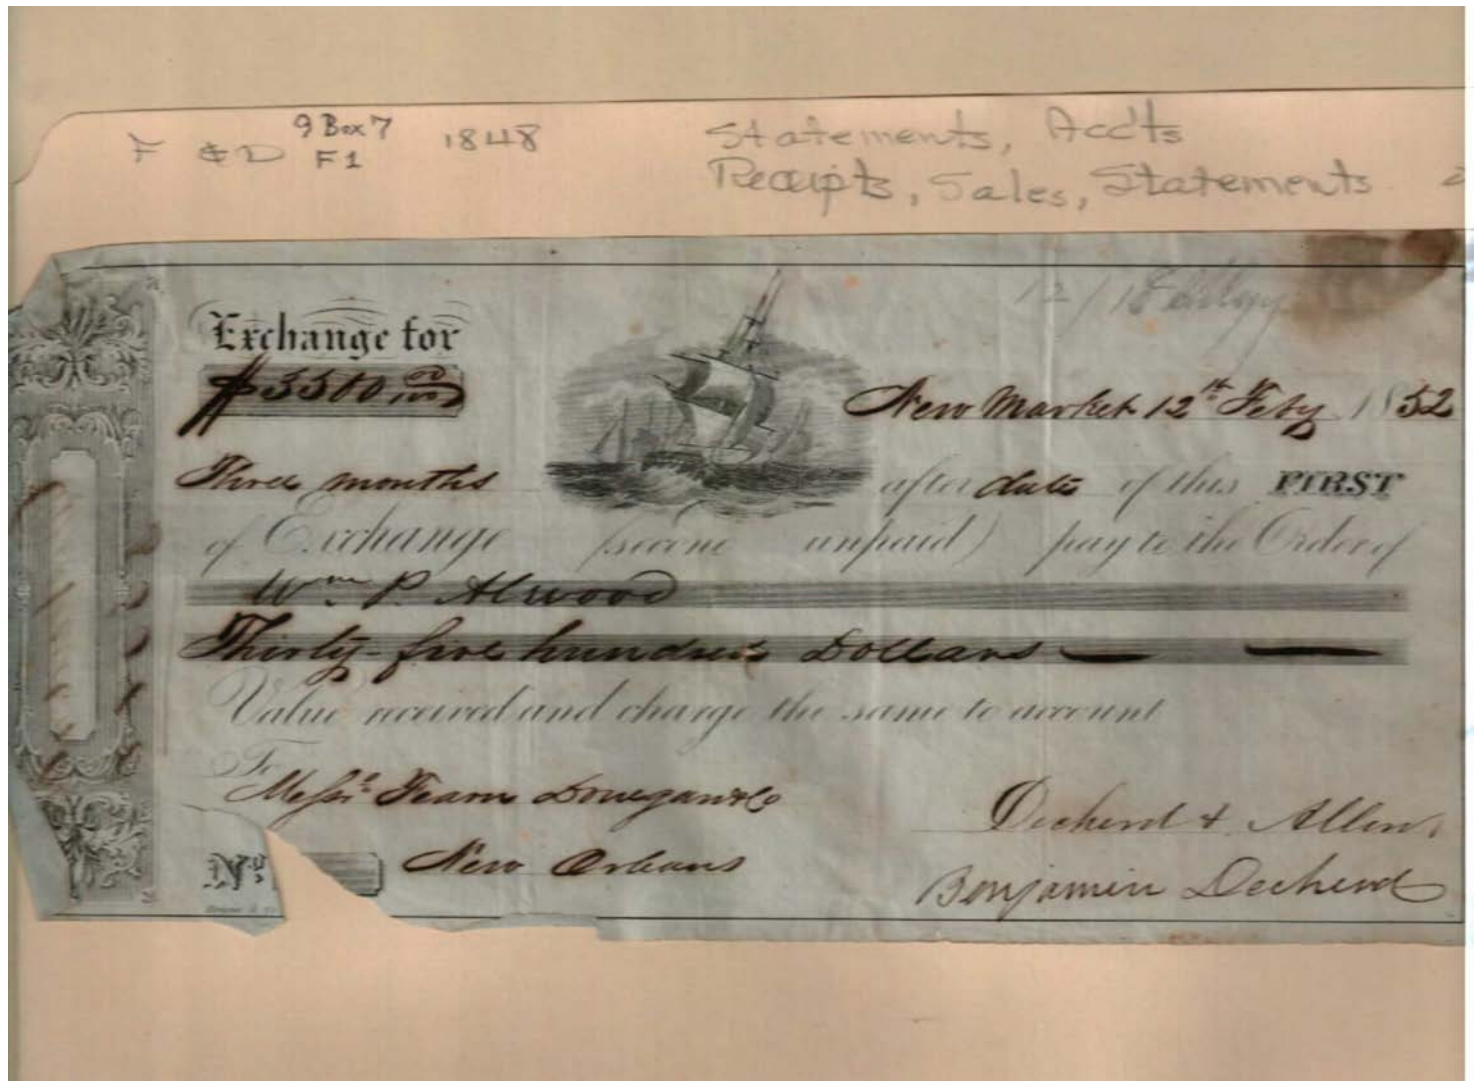 9 Box 7
F & D F1 1848 Statements, Acc'ts
Receipts, Sales, Statements
12/15
Exchange for
$3500 00/100
New Market 12th Feby 1852
Three months after date of this FIRST
of Exchange (second unpaid) pay to the Order of
Wm. P. Atwood
Thirty-five hundred Dollars
Value received and charge the same to account
To
Messrs Fearn Donegan & Co
Decherd & Allen
No. New Orleans
Benjamin Decherd